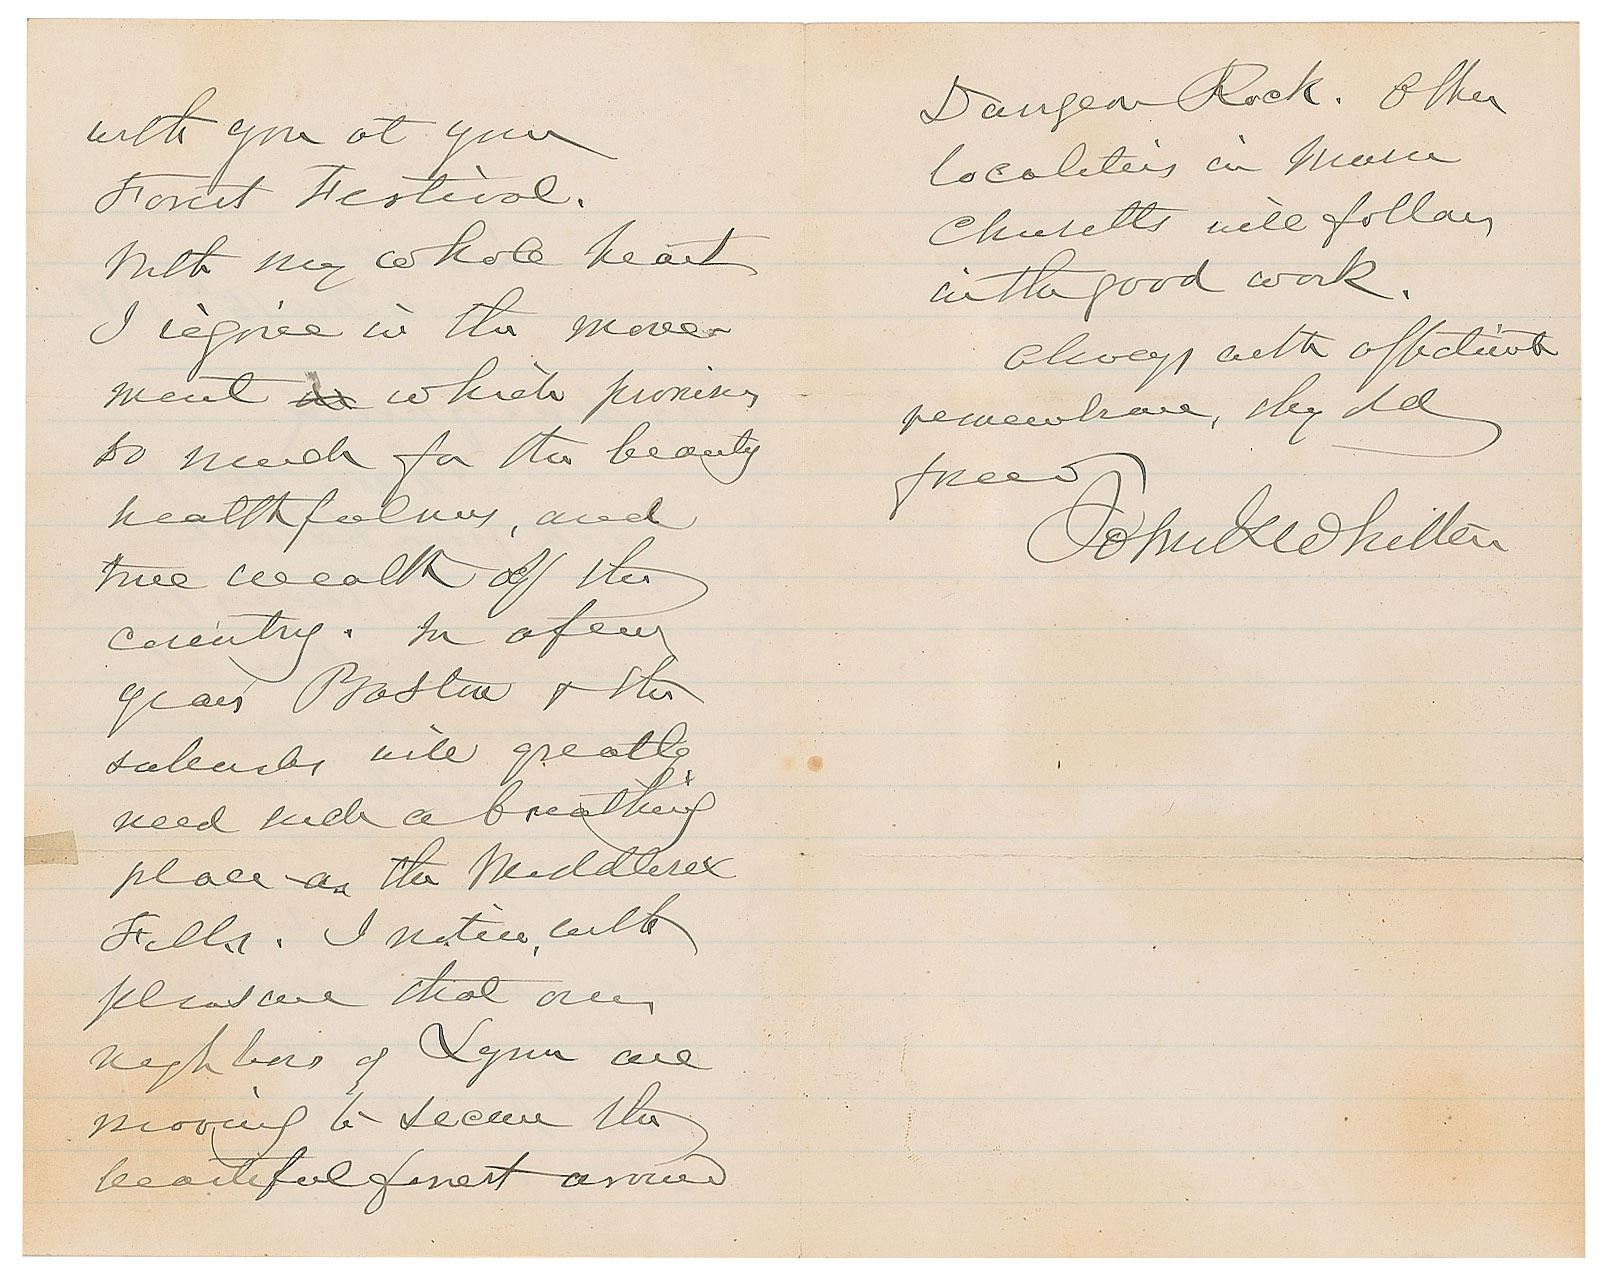 with you at your
Forest Festival.
With my whole heart
I rejoice in the move-
ment in which promises
so much for the beauty
healthfulness, and
true wealth of the
country. In a few
years Boston & the
suburbs will greatly
need such a breathing
place as the Middlesex
Fells. I notice, with
pleasure that our
neighbors of Lynn are
moving to secure the
beautiful forest around
Dungeon Rock. Other
localities in Massa
chusetts will follow
in the good work.
Always with affectionate
remembrance, thy old
friend
John G Whittier